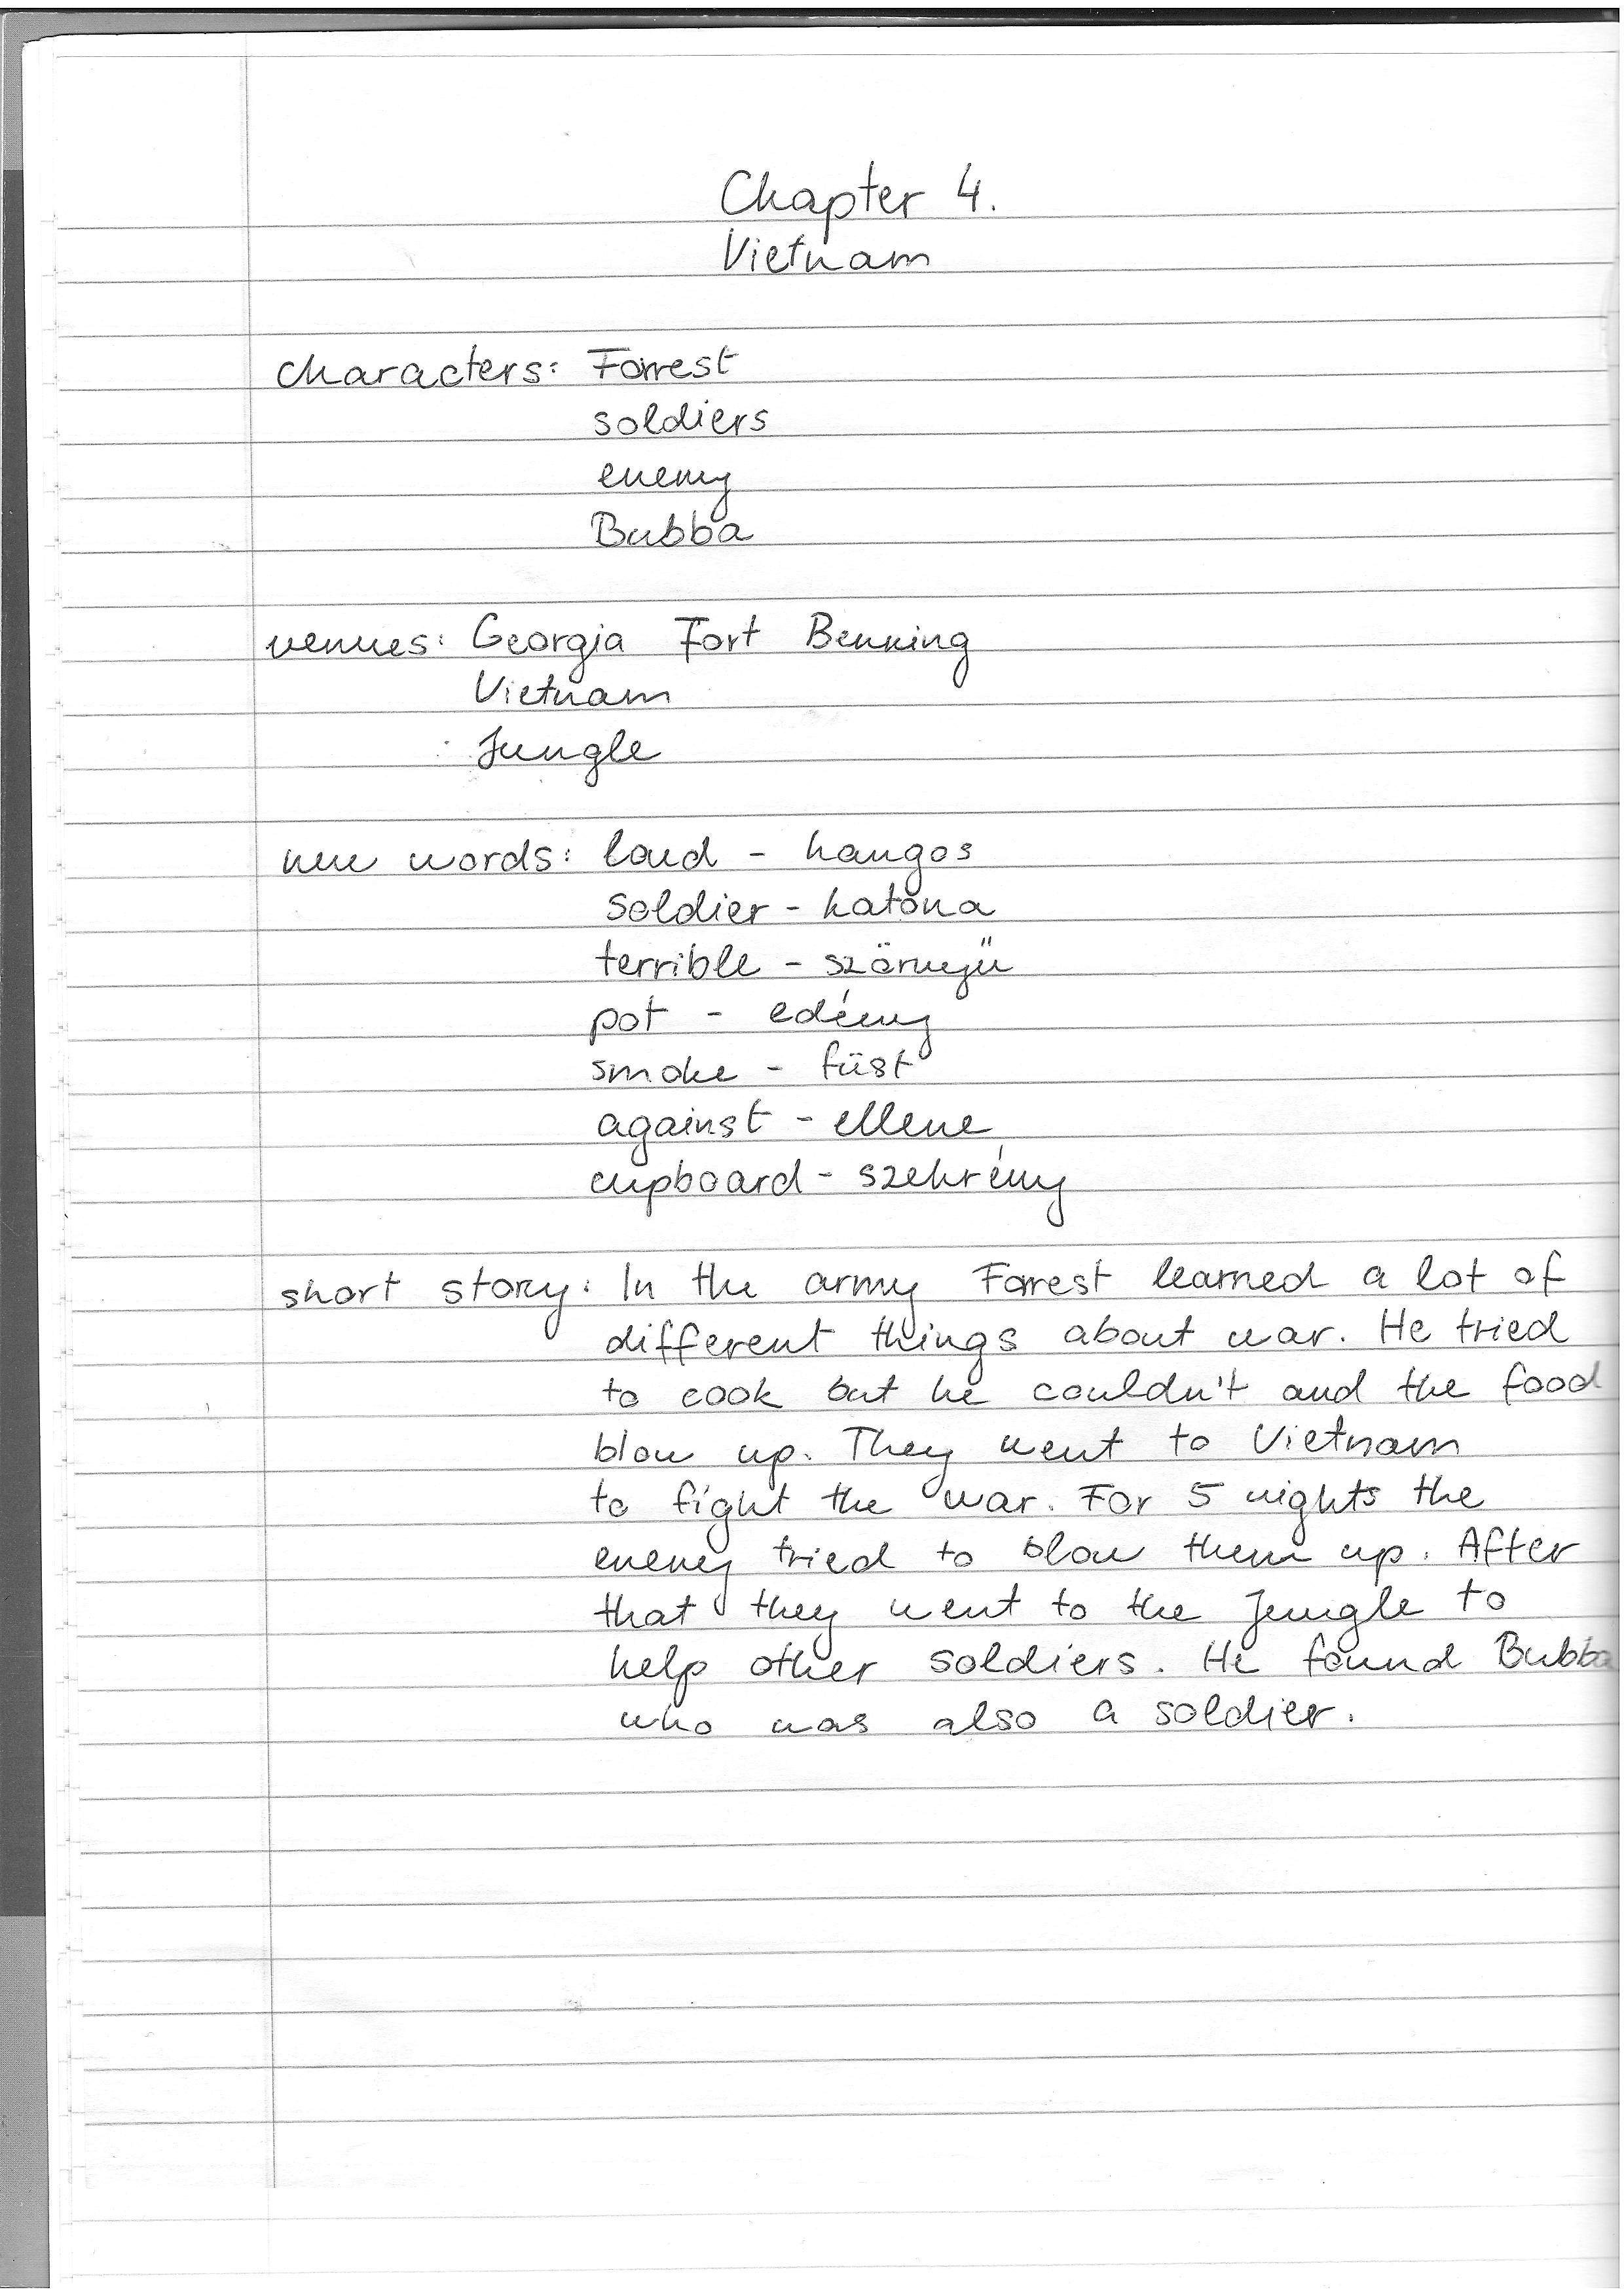 Chapter 4.
Vietnam
characters: Forrest
soldiers
enemy
Bubba
venues: Georgia Fort Benning
Vietnam
Jungle
new words: loud - hangos
soldier - katona
terrible - szörnyű
pot - edény
smoke - füst
against - ellene
cupboard - szekrény
short story: In the army Forrest learned a lot of
different things about war. He tried
to cook but he couldn't and the food
blow up. They went to Vietnam
to fight the war. For 5 nights the
enemy tried to blow them up. After
that they went to the Jungle to
help other soldiers. He found Bubba
who was also a soldier.